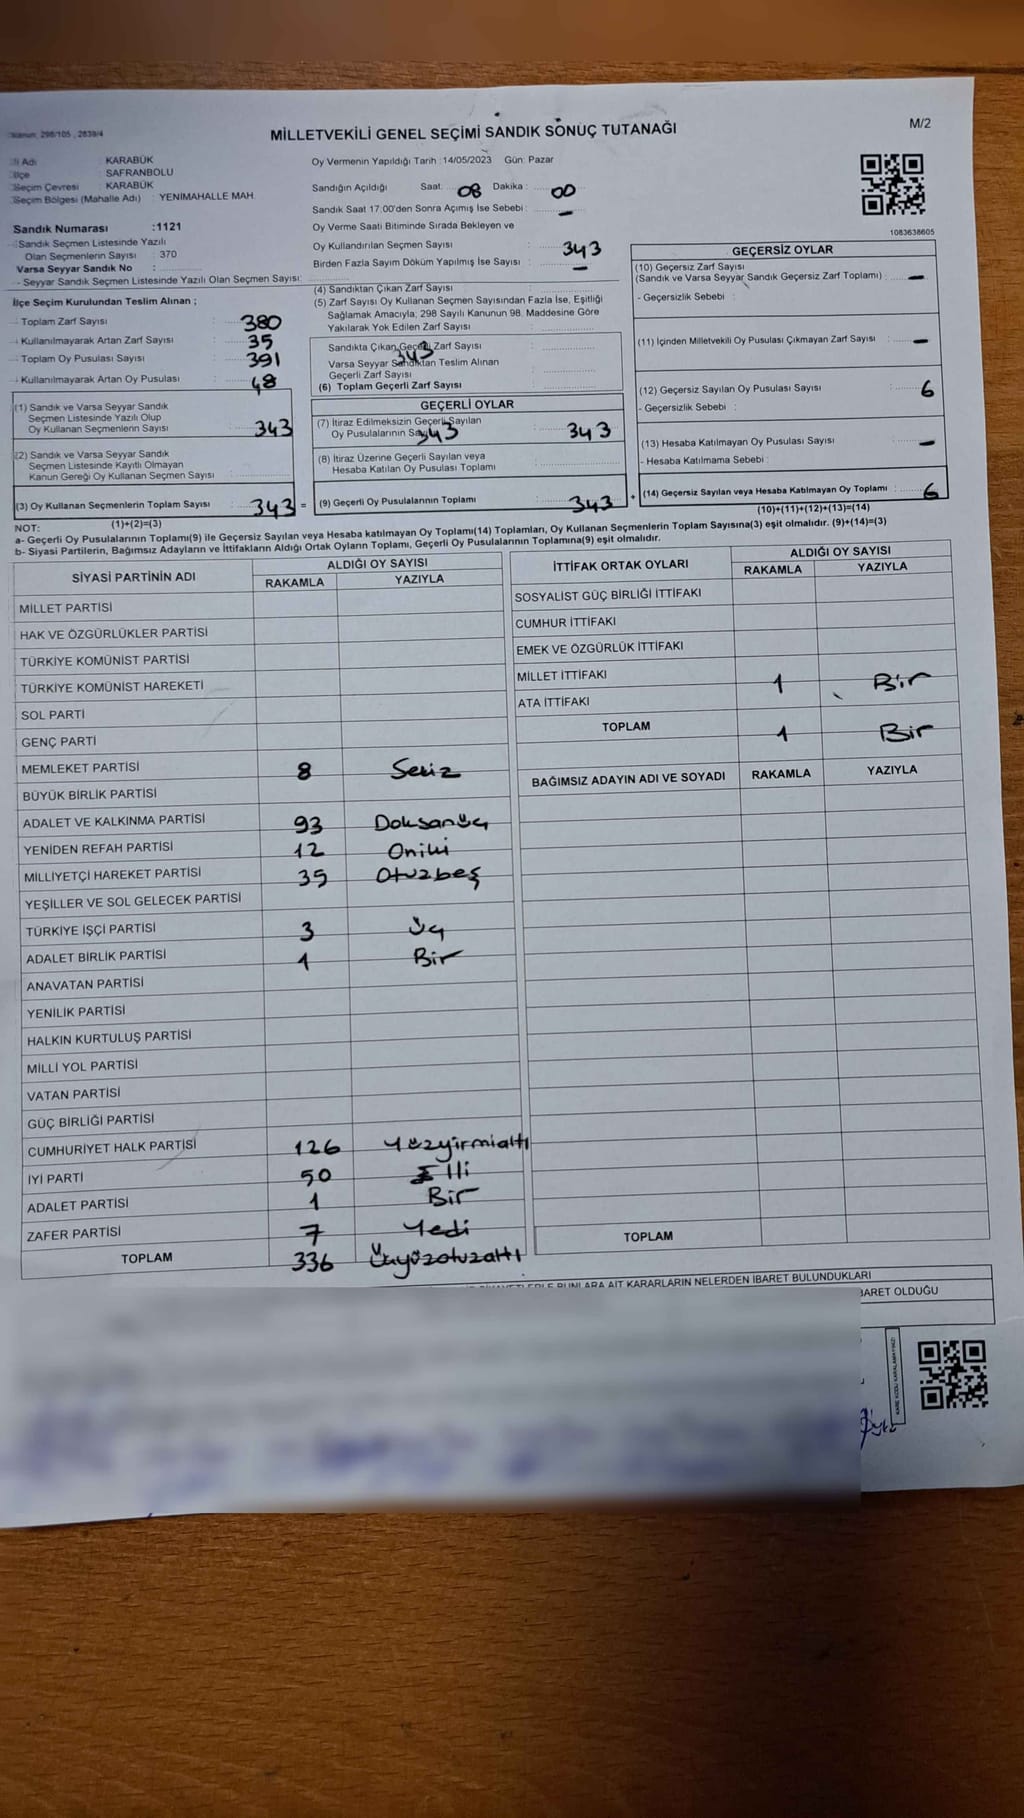 Kanun: 298/105 , 2839/4
MİLLETVEKİLİ GENEL SEÇİMİ SANDIK SONUÇ TUTANAĞI
M/2
İl Adı : KARABÜK
İlçe : SAFRANBOLU
Seçim Çevresi : KARABÜK
Seçim Bölgesi (Mahalle Adı) : YENİMAHALLE MAH.
Oy Vermenin Yapıldığı Tarih : 14/05/2023 Gün: Pazar
Sandığın Açıldığı Saat: 08 Dakika : 00
Sandık Saat 17:00'den Sonra Açımış İse Sebebi : –
Oy Verme Saati Bitiminde Sırada Bekleyen ve
Oy Kullandırılan Seçmen Sayısı : 343
Birden Fazla Sayım Döküm Yapılmış İse Sayısı : –
1083638605
Sandık Numarası :1121
- Sandık Seçmen Listesinde Yazılı
Olan Seçmenlerin Sayısı : 370
Varsa Seyyar Sandık No :
- Seyyar Sandık Seçmen Listesinde Yazılı Olan Seçmen Sayısı:
İlçe Seçim Kurulundan Teslim Alınan ;
- Toplam Zarf Sayısı : 380
- Kullanılmayarak Artan Zarf Sayısı : 35
- Toplam Oy Pusulası Sayısı : 391
- Kullanılmayarak Artan Oy Pusulası : 48
(1) Sandık ve Varsa Seyyar Sandık
Seçmen Listesinde Yazılı Olup
Oy Kullanan Seçmenlerin Sayısı : 343
(2) Sandık ve Varsa Seyyar Sandık
Seçmen Listesinde Kayıtlı Olmayan
Kanun Gereği Oy Kullanan Seçmen Sayısı :
(3) Oy Kullanan Seçmenlerin Toplam Sayısı : 343 =
(1)+(2)=(3)
(4) Sandıktan Çıkan Zarf Sayısı :
(5) Zarf Sayısı Oy Kullanan Seçmen Sayısından Fazla İse, Eşitliği
Sağlamak Amacıyla, 298 Sayılı Kanunun 98. Maddesine Göre
Yakılarak Yok Edilen Zarf Sayısı :
Sandıkta Çıkan Geçerli Zarf Sayısı : 343
Varsa Seyyar Sandıktan Teslim Alınan
Geçerli Zarf Sayısı :
(6) Toplam Geçerli Zarf Sayısı :
GEÇERLİ OYLAR
(7) İtiraz Edilmeksizin Geçerli Sayılan
Oy Pusulalarının Sayısı 343 : 343
(8) İtiraz Üzerine Geçerli Sayılan veya
Hesaba Katılan Oy Pusulası Toplamı :
(9) Geçerli Oy Pusulalarının Toplamı : 343 +
GEÇERSİZ OYLAR
(10) Geçersiz Zarf Sayısı
(Sandık ve Varsa Seyyar Sandık Geçersiz Zarf Toplamı) : –
- Geçersizlik Sebebi :
(11) İçinden Milletvekili Oy Pusulası Çıkmayan Zarf Sayısı : –
(12) Geçersiz Sayılan Oy Pusulası Sayısı : 6
- Geçersizlik Sebebi :
(13) Hesaba Katılmayan Oy Pusulası Sayısı : –
- Hesaba Katılmama Sebebi :
(14) Geçersiz Sayılan veya Hesaba Katılmayan Oy Toplamı : 6
(10)+(11)+(12)+(13)=(14)
NOT:
a- Geçerli Oy Pusulalarının Toplamı(9) ile Geçersiz Sayılan veya Hesaba katılmayan Oy Toplamı(14) Toplamları, Oy Kullanan Seçmenlerin Toplam Sayısına(3) eşit olmalıdır. (9)+(14)=(3)
b- Siyasi Partilerin, Bağımsız Adayların ve İttifakların Aldığı Ortak Oyların Toplamı, Geçerli Oy Pusulalarının Toplamına(9) eşit olmalıdır.
SİYASİ PARTİNİN ADI ALDIĞI OY SAYISI
RAKAMLA YAZIYLA
MİLLET PARTİSİ
HAK VE ÖZGÜRLÜKLER PARTİSİ
TÜRKİYE KOMÜNİST PARTİSİ
TÜRKİYE KOMÜNİST HAREKETİ
SOL PARTİ
GENÇ PARTİ
MEMLEKET PARTİSİ 8 Sekiz
BÜYÜK BİRLİK PARTİSİ
ADALET VE KALKINMA PARTİSİ 93 Doksanüç
YENİDEN REFAH PARTİSİ 12 Oniki
MİLLİYETÇİ HAREKET PARTİSİ 35 Otuzbeş
YEŞİLLER VE SOL GELECEK PARTİSİ
TÜRKİYE İŞÇİ PARTİSİ 3 Üç
ADALET BİRLİK PARTİSİ 1 Bir
ANAVATAN PARTİSİ
YENİLİK PARTİSİ
HALKIN KURTULUŞ PARTİSİ
MİLLİ YOL PARTİSİ
VATAN PARTİSİ
GÜÇ BİRLİĞİ PARTİSİ
CUMHURİYET HALK PARTİSİ 126 Yüzyirmialtı
İYİ PARTİ 50 Elli
ADALET PARTİSİ 1 Bir
ZAFER PARTİSİ 7 Yedi
TOPLAM 336 Üçyüzotuzaltı
İTTİFAK ORTAK OYLARI ALDIĞI OY SAYISI
RAKAMLA YAZIYLA
SOSYALİST GÜÇ BİRLİĞİ İTTİFAKI
CUMHUR İTTİFAKI
EMEK VE ÖZGÜRLÜK İTTİFAKI
MİLLET İTTİFAKI 1 Bir
ATA İTTİFAKI
TOPLAM 1 Bir
BAĞIMSIZ ADAYIN ADI VE SOYADI RAKAMLA YAZIYLA
TOPLAM
BUNLARA AİT KARARLARIN NELERDEN İBARET BULUNDUKLARI
İBARET OLDUĞU